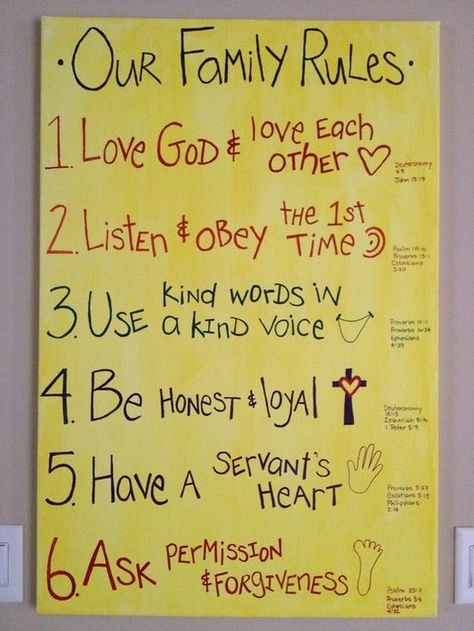 · Our Family Rules ·
1. Love God & love Each
other
Deuteronomy
6:5
John 13:
2. Listen & obey the 1st
Time
Psalm
Proverbs 13:1
Colossians
3:20
3. Use kind words in
a kind voice
Proverbs 15:1
Proverbs 16:24
Ephesians
4:29
4. Be Honest & loyal
Deuteronomy
Zechariah 8:16
1 Peter
5. Have A Servant's
Heart
Proverbs 3:27
Galatians 5:13
Philippians
2:14
6. Ask Permission
& Forgiveness
Psalm 25:11
Proverbs 3:6
Ephesians
4:32